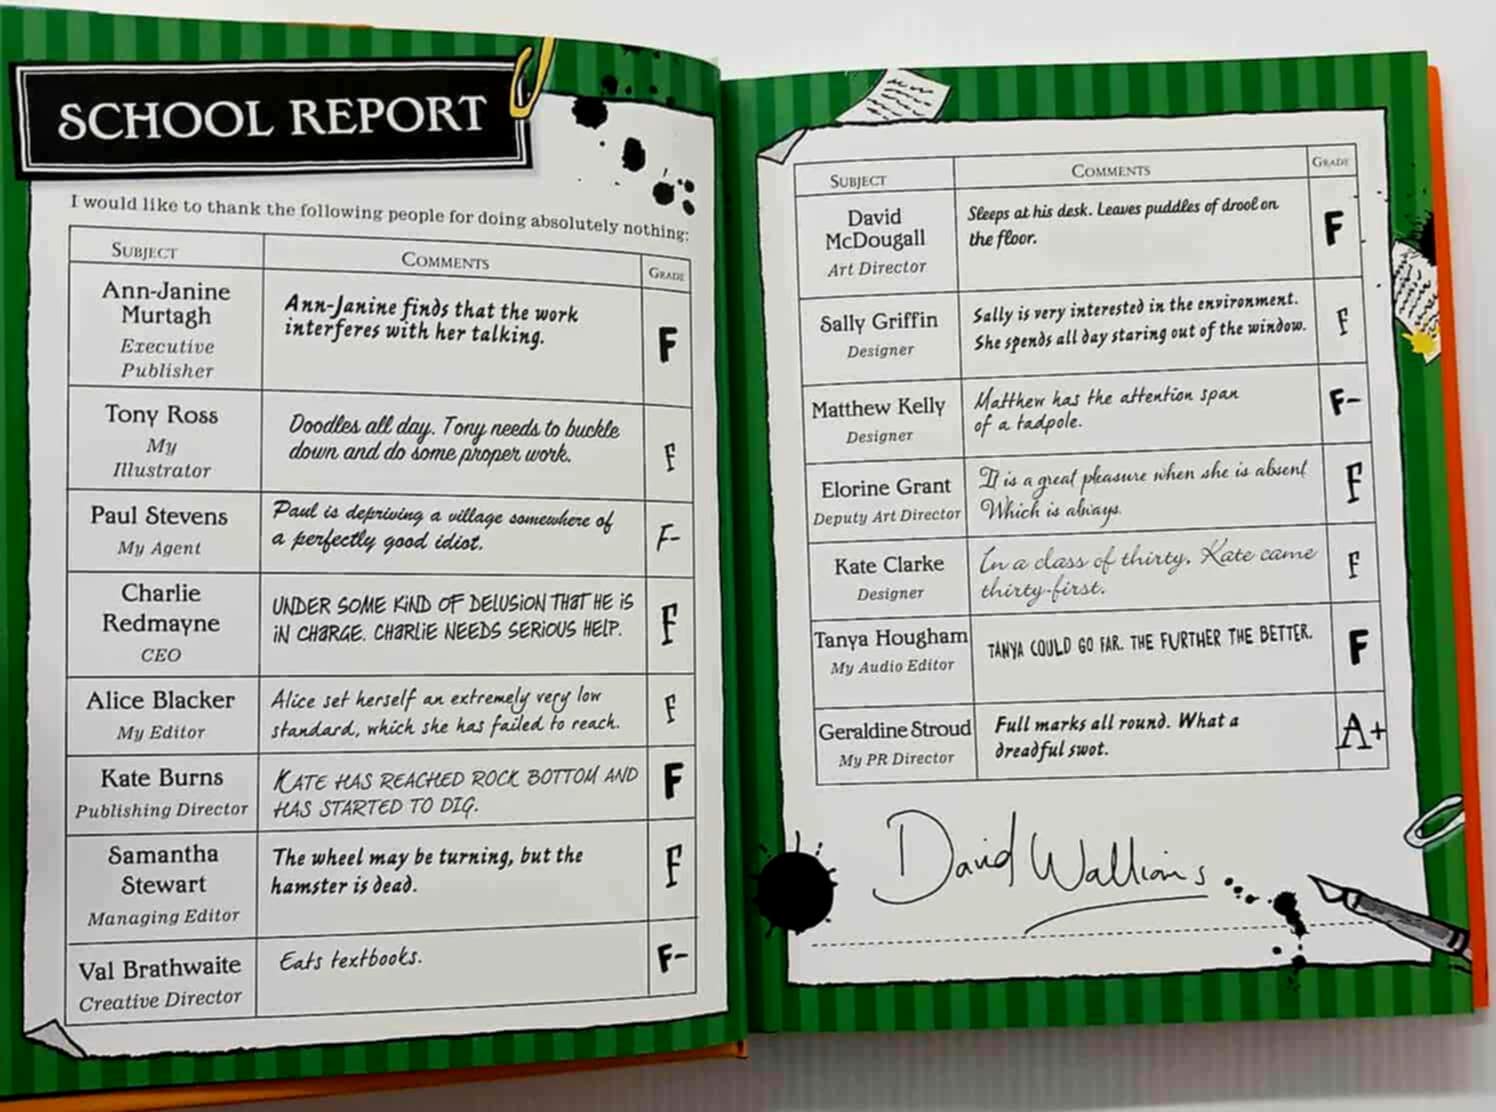 SCHOOL REPORT
I would like to thank the following people for doing absolutely nothing:
SUBJECT COMMENTS GRADE
Ann-Janine
Murtagh
Executive
Publisher
Ann-Janine finds that the work
interferes with her talking.
F
Tony Ross
My
Illustrator
Doodles all day. Tony needs to buckle
down and do some proper work.
F
Paul Stevens
My Agent
Paul is depriving a village somewhere of
a perfectly good idiot.
F-
Charlie
Redmayne
CEO
UNDER SOME KIND OF DELUSION THAT HE IS
IN CHARGE. CHARLIE NEEDS SERIOUS HELP.
F
Alice Blacker
My Editor
Alice set herself an extremely very low
standard, which she has failed to reach.
F
Kate Burns
Publishing Director
KATE HAS REACHED ROCK BOTTOM AND
HAS STARTED TO DIG.
F
Samantha
Stewart
Managing Editor
The wheel may be turning, but the
hamster is dead.
F
Val Brathwaite
Creative Director
Eats textbooks.
F-
SUBJECT COMMENTS GRADE
David
McDougall
Art Director
Sleeps at his desk. Leaves puddles of drool on
the floor.
F
Sally Griffin
Designer
Sally is very interested in the environment.
She spends all day staring out of the window.
F
Matthew Kelly
Designer
Matthew has the attention span
of a tadpole.
F-
Elorine Grant
Deputy Art Director
It is a great pleasure when she is absent
Which is always.
F
Kate Clarke
Designer
In a class of thirty, Kate came
thirty-first.
F
Tanya Hougham
My Audio Editor
TANYA COULD GO FAR. THE FURTHER THE BETTER.
F
Geraldine Stroud
My PR Director
Full marks all round. What a
dreadful swot.
A+
David Walliams